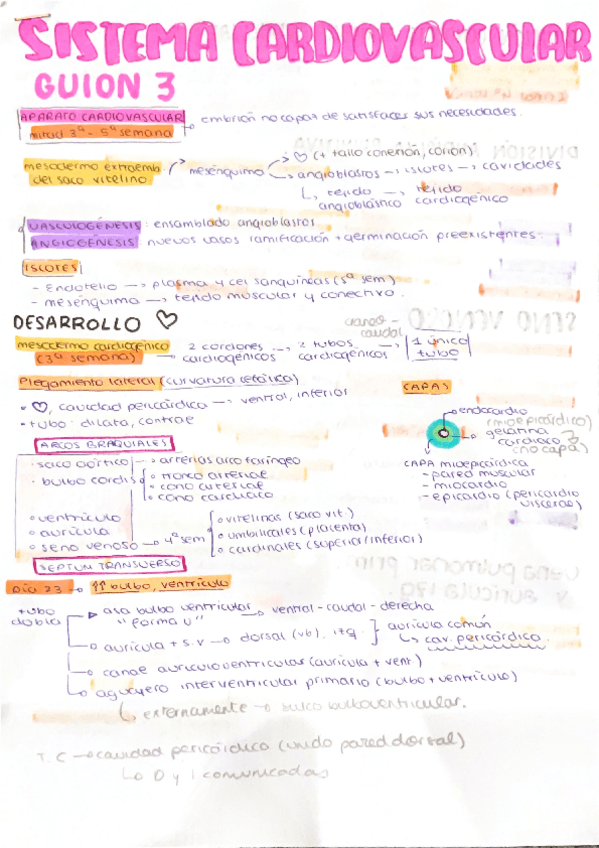 SISTEMA CARDIOVASCULAR
GUION 3
APARATO CARDIOVASCULAR → embrión no capaz de satisfacer sus necesidades.
mitad 3ª - 5ª semana
mesodermo extraem. del saco vitelino → mesénquima → ♡ (+ tallo conexión, corion)
↳ angioblastos → islotes → cavidades
↳ tejido angioblástico → tejido cardiogénico
VASCULOGÉNESIS: ensamblado angioblastos
ANGIOGÉNESIS nuevos vasos ramificación + germinación preexistentes.
ISLOTES
- Endotelio → plasma y cel sanguíneas (5ª sem.)
- mesénquima → tejido muscular y conectivo.
DESARROLLO ♡
craneo-caudal
mesodermo cardiogénico (3ª semana) → 2 cordones cardiogénicos → 2 tubos cardiogénicos → 1 único tubo
Plegamiento lateral (curvatura cefálica)
- ♡, cavidad pericárdica → ventral, inferior
- tubo: dilata, contrae
CAPAS
endocardio
(mioepicárdico)
gelatina cardiaca
(no capa)
CAPA mioepicárdica
- pared muscular
- miocardio
- epicardio (pericardio visceral)
ARCOS BRAQUIALES
· saco aórtico → arterias arco faríngeo
· bulbo cordis
tronco arterial
cono arterial
cono cardiaco
ventrículo
aurícula
seno venoso → 4ª sem
vitelinas (saco vit.)
umbilicales (placenta)
cardinales (superior/inferior)
SEPTUM TRANSVERSO
Día 23 → ↑↑ bulbo, ventrículo
tubo dobla
asa bulbo ventricular → ventral - caudal - derecha
"forma U"
aurícula + s.v → dorsal (vb), izq. } aurícula común
↳ cav. pericárdica
canal auriculoventricular (aurícula + vent.)
agujero interventricular primario (bulbo + ventrículo)
↳ externamente → surco bulboventricular.
T.C → cavidad pericárdica (unido pared dorsal)
↳ D y I comunicadas